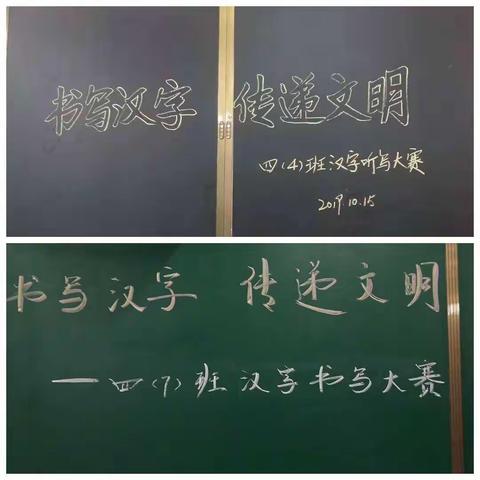 书写汉字 传递文明
四(4)班汉字听写大赛
2019.10.15
书写汉字 传递文明
——四(7)班汉字书写大赛